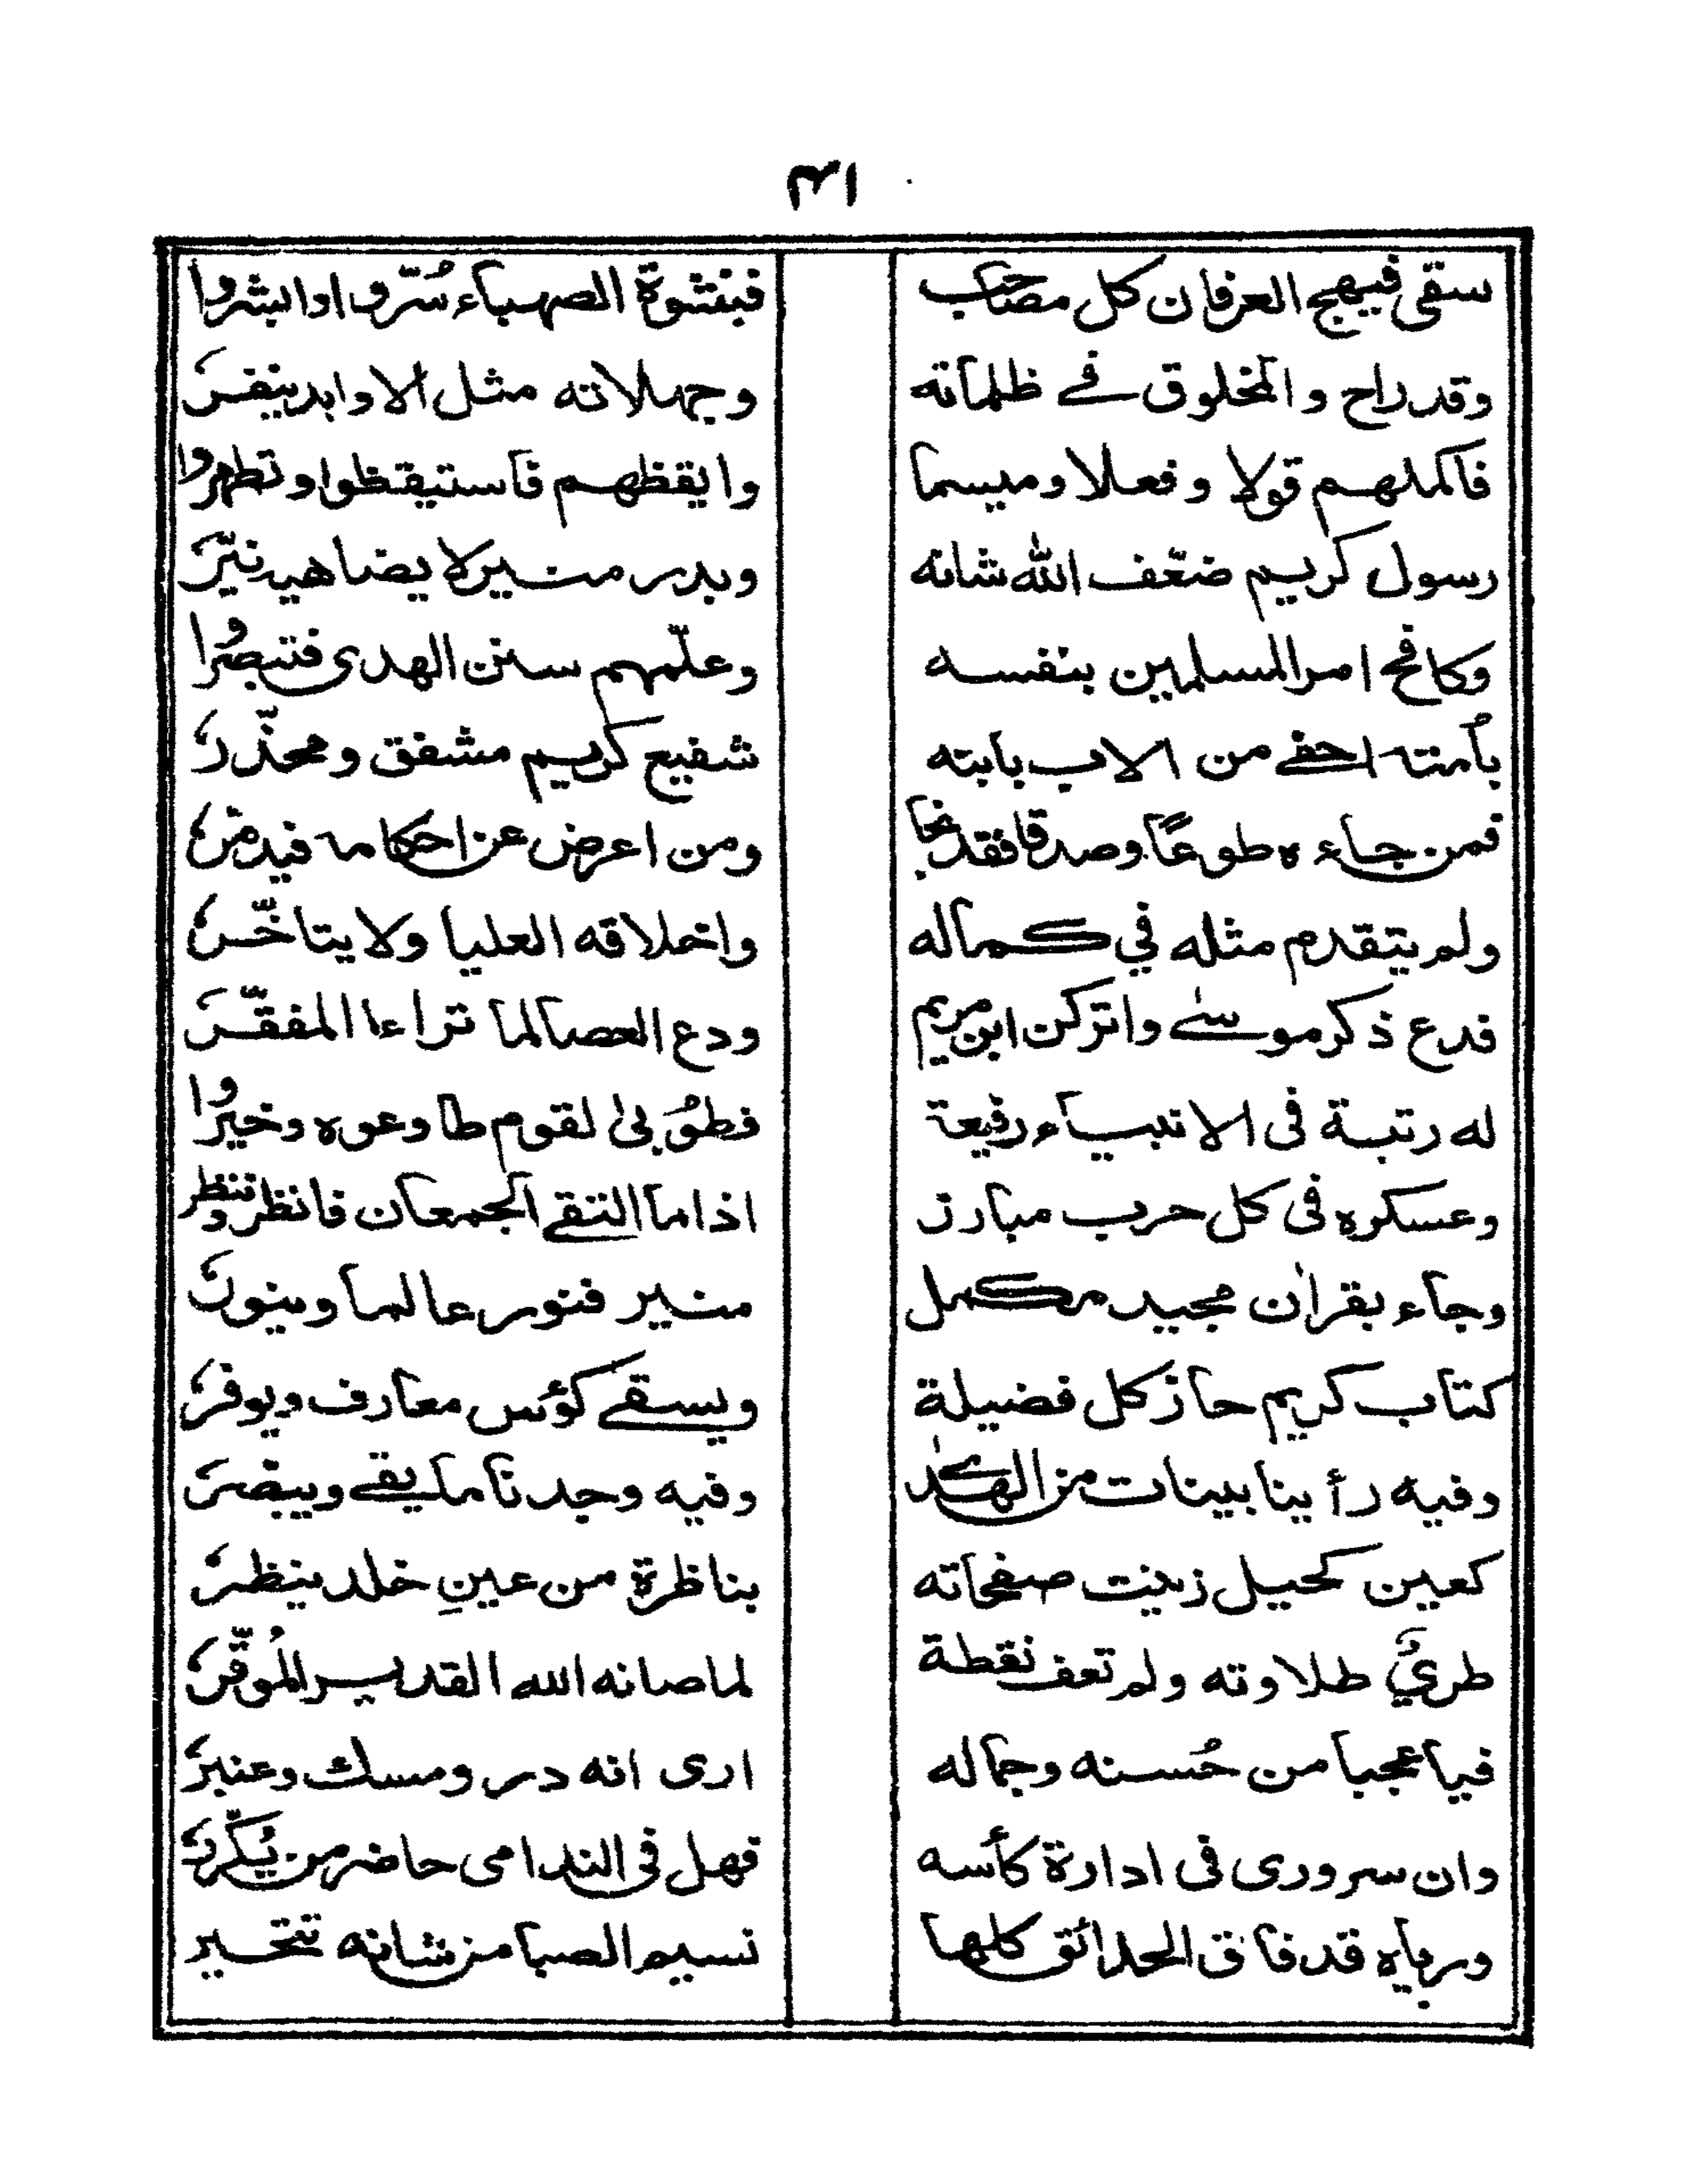 ١٣٢
سقى فيهج العرفان كل مصاحب فبنشوة الصهباء سُرّوا وابشروا
وقد راح والمخلوق في ظلماته وجهلاته مثل الاوابد ينفرُ
فاكملهم قولا وفعلا وميسما وايقظهم فاستيقظوا وتطهروا
رسول كريم ضعّف الله شانه وبدر منير لا يضاهيه نيّرُ
وكافح امر المسلمين بنفسه وعلّمهم سنن الهدى فتبصّروا
بأمته احفى من الاب بابنه شفيع كريم مشفق ومحذّرُ
فمن جاءه طوعًا وصدقا فقد نجا ومن اعرض عن احكامه فيدمّرُ
ولم يتقدم مثله في كماله واخلاقه العليا ولا يتاخّرُ
فدع ذكر موسىٰ واتركن ابن مريم ودع العصا لما تراءا المفقّرُ
له رتبة فى الانبياء رفيعة فطوبىٰ لقوم طاوعوه وخيروا
وعسكره فى كل حرب مبارز اذا ما التقى الجمعان فانظر وننظر
وجاء بقراٰن مجيد مكمل منير فنور عالما وينورُ
كتاب كريم حاز كل فضيلة ويسقي كؤس معارف ويوفرُ
وفيه رأينا بينات من الهدىٰ وفيه وجدنا ما يقي ويبصّرُ
كعين كحيل زينت صفحاته بناظرة من عينِ خلد ينظرُ
طريٌّ طلاوته ولم تعف نقطة لما صانه الله القدير الموقّرُ
فيا عجبا من حُسنه وجماله ارى انه در ومسك وعنبرُ
وان سرورى فى ادارة كأسه فهل فى الندامى حاضر من يُكرّرُ
ورياه قد فاق الحدائق كلها نسيم الصبا من شانه تتحير